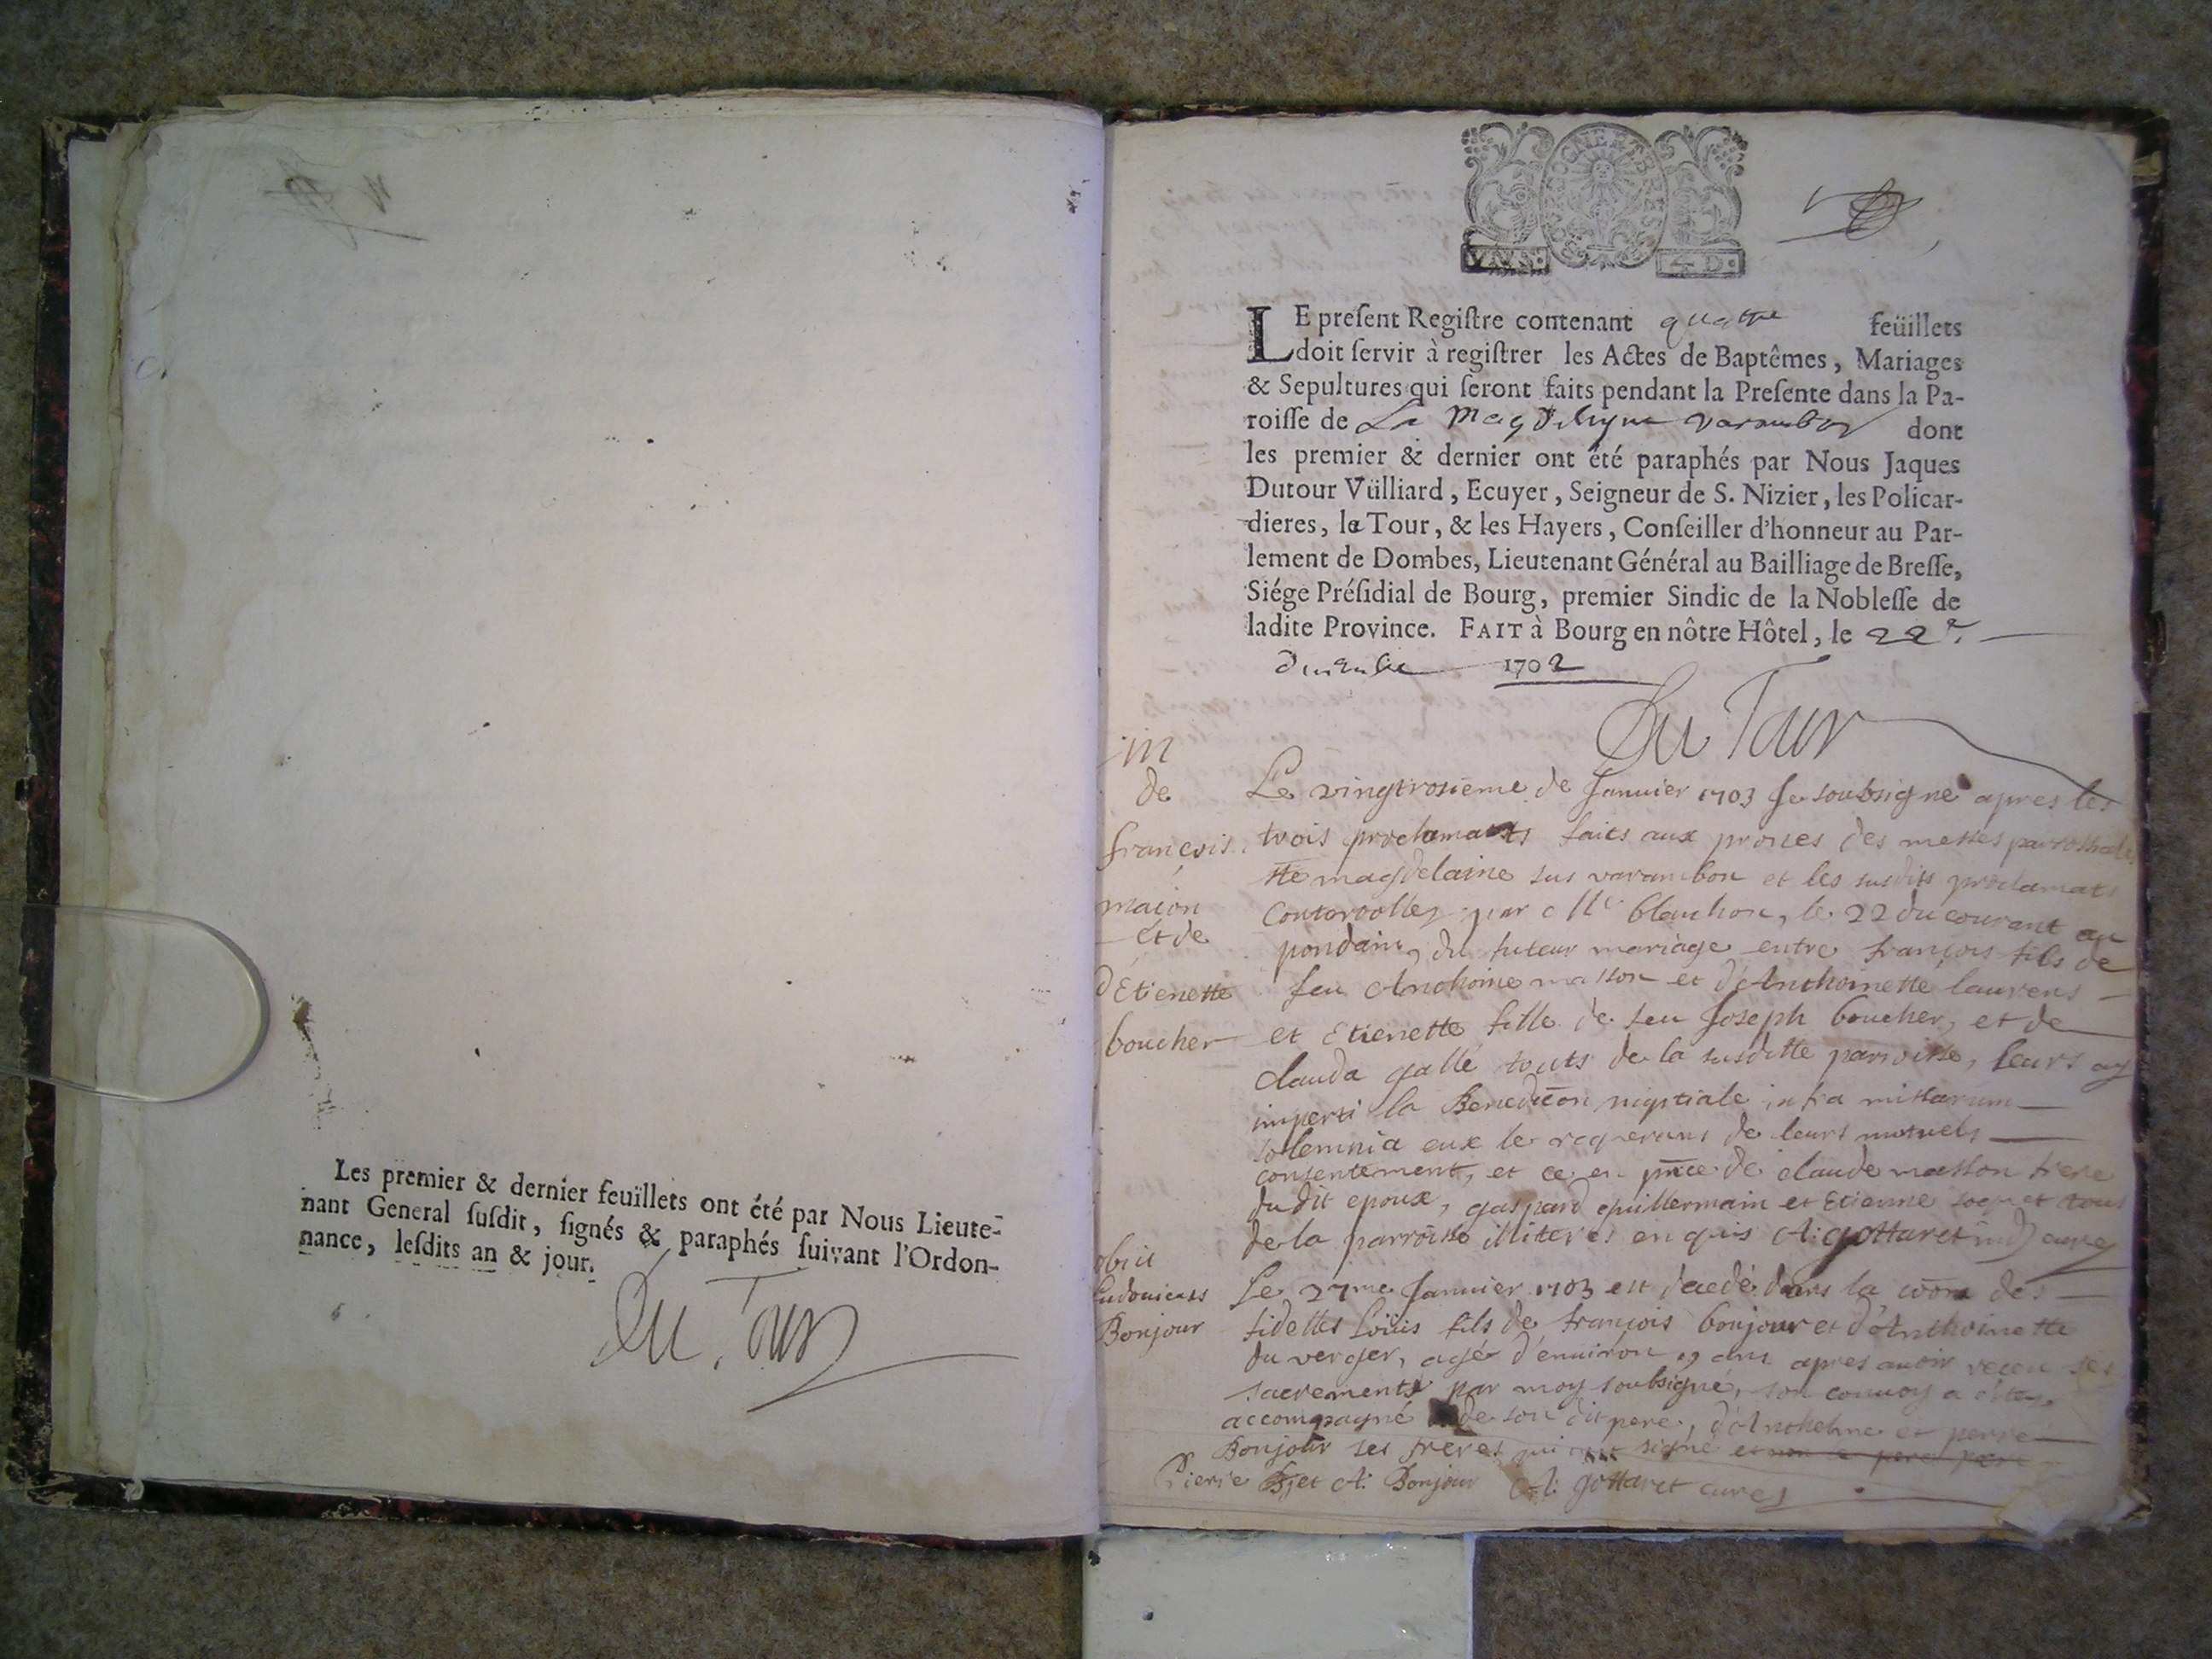 Les premier & dernier feuïllets ont été par Nous Lieute-
nant General ſuſdit, ſignés & paraphés ſuivant l'Ordon-
nance, leſdits an & jour.
Du Tour
BOURGOGNE ET BRESSE
LE preſent Regiſtre contenant quatre feüillets
doit ſervir à regiſtrer les Actes de Baptêmes, Mariages
& Sepultures qui ſeront faits pendant la Preſente dans la Pa-
roiſſe de La Magdelayne Varambon dont
les premier & dernier ont été paraphés par Nous Jaques
Dutour Vülliard, Ecuyer, Seigneur de S. Nizier, les Policar-
dieres, la Tour, & les Hayers, Conſeiller d'honneur au Par-
lement de Dombes, Lieutenant Général au Bailliage de Breſſe,
Siége Préſidial de Bourg, premier Sindic de la Nobleſſe de
ladite Province. FAIT à Bourg en nôtre Hôtel, le 22e
decembre 1702
Du Tour
m
de
françois
maçon
et de
d'Etienette
boucher
Le vingtrosieme de Janvier 1703 Je soubsigné apres les
trois proclamats faits aux prones des messes parrossiales
ste magdelaine sus varambon et les susdits proclamats
Contorolles par Me blanchon, le 22 du courant au
pondain, du futeur mariage entre françois fils de
feu Anthoine masson et d'Anthoinette laurens
et Etienette fille de feu Joseph boucher, et de
clauda gallé touts de la susditte parroisse, leurs ay
imperti la Benediction nuptiale infra missarum
solemnia eux le requerans de leurs mutuels
consentement, et ce en pnce de claude masson frere
du dit epoux, gaspard guillermain et Etienne tous
de la parroisse illiteres enquis A: gottaret curé
obiit
Ludovicus
Bonjour
Le 27me Janvier 1703 est decedé dans la des
fidelles Loüis fils de françois bonjour et d'Anthoinette
du verger, agé d'environ ans apres avoir receu ses
sacrements par moy soubsigné, son convoy a esté
accompagné de son dit pere, d'Anthelme et pierre
Bonjour ses freres qui ont signé et non le pere
Pierre Bjet A: Bonjour A: gottaret curé